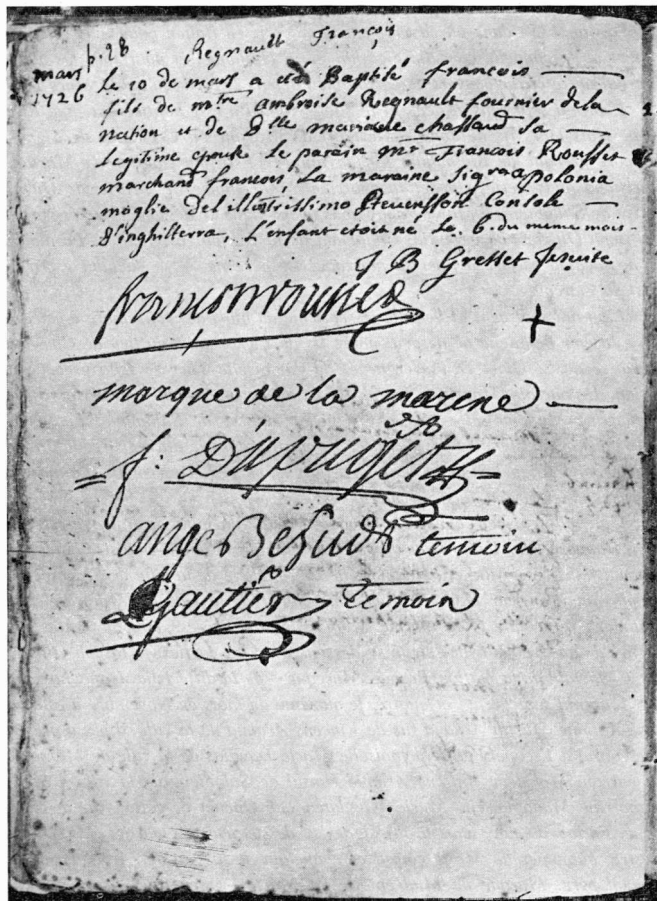 p. 28 Regnault François
mars
1726
Le 10 de mars a eté Baptisé francois
fils de mtre ambroise Regnault fournier de la
nation et de dlle chassaud sa
Legitime epouse le parain mr François Rousset
marchand francois, La maraine sigra apolonia
moglie del illustrissimo Stevensson Console
d'inghilterra, L'enfant etoit né le 6. du meme mois
J B Gresset Jesuite
+
marque de la marene
f: Dupuget
ange temoin
Gautier temoin